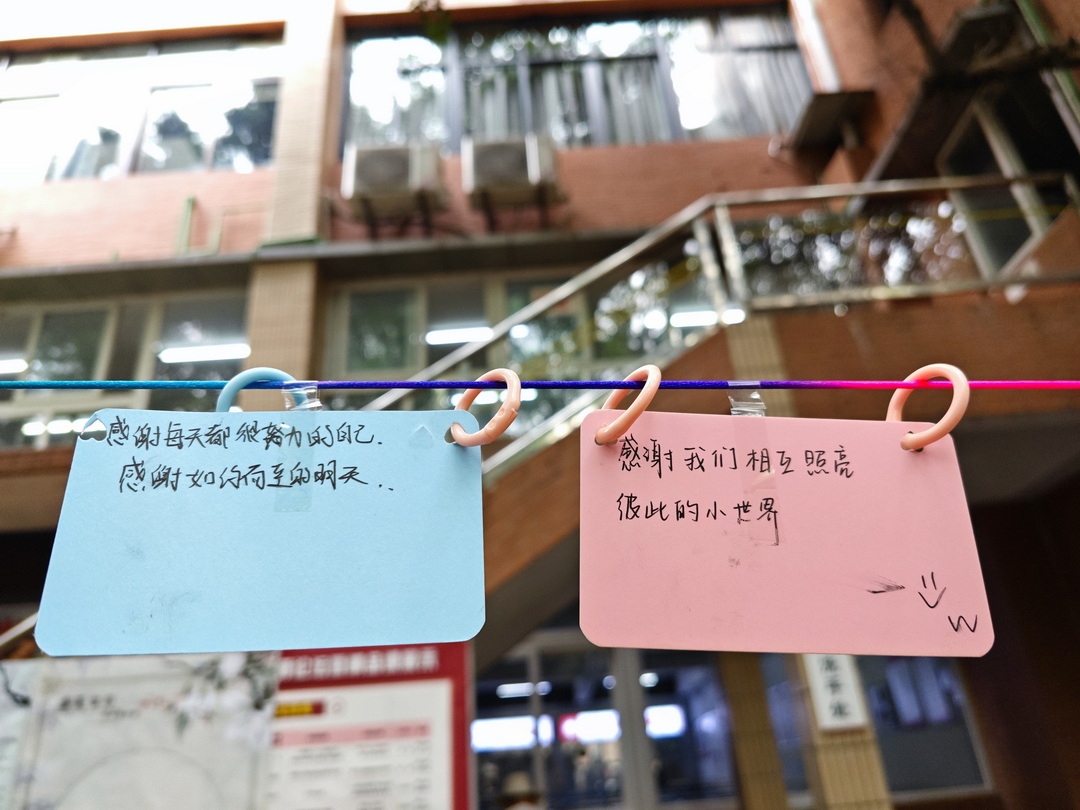 感谢每天都很努力的自己.
感谢如约而至的明天..
感谢我们相互照亮
彼此的小世界
W